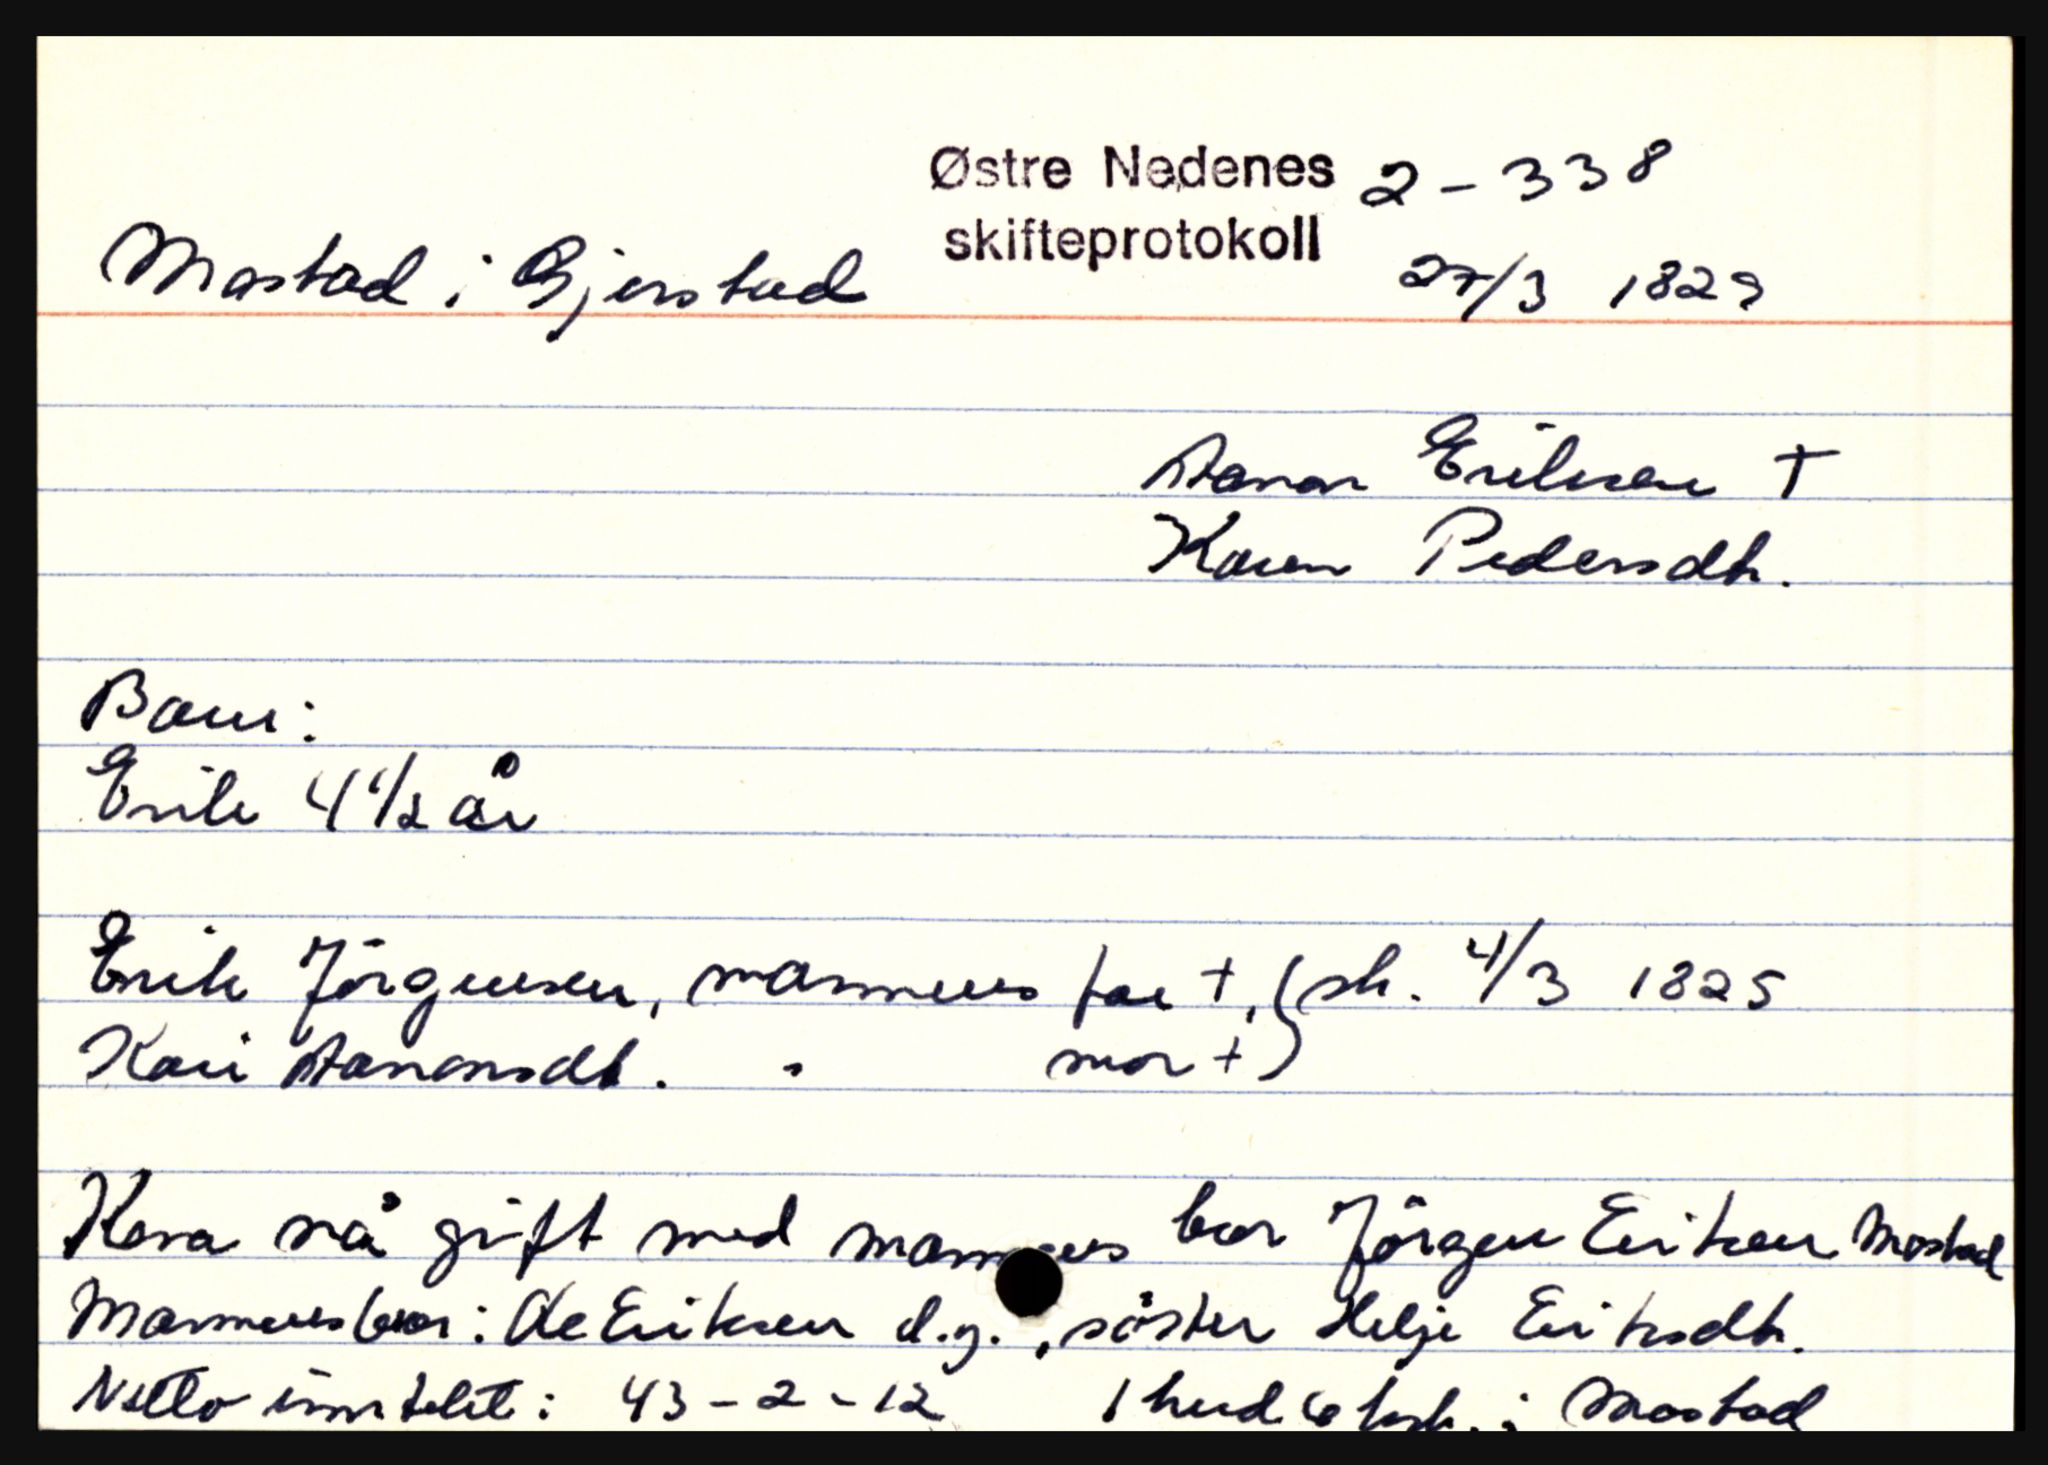 Østre Nedenes 2 - 338
skifteprotokoll
Mostad i Gjerstad 27/3 1829
Aanon Eriksen †
Karen Pedersdtr.
Barn:
Erik 4 1/2 år
Erik Jörgensen, mannens far †, (sk. 4/3 1825
Kari Aanonsdtr. " mor †)
Karen nå gift med mannens bror Jörgen Eriksen Mostad
Mannens bror: Ole Eriksen d.y., söster Helje Eriksdtr.
Netto inntekt: 43 - 2 - 12 1 hud 6 ksk. i Mostad